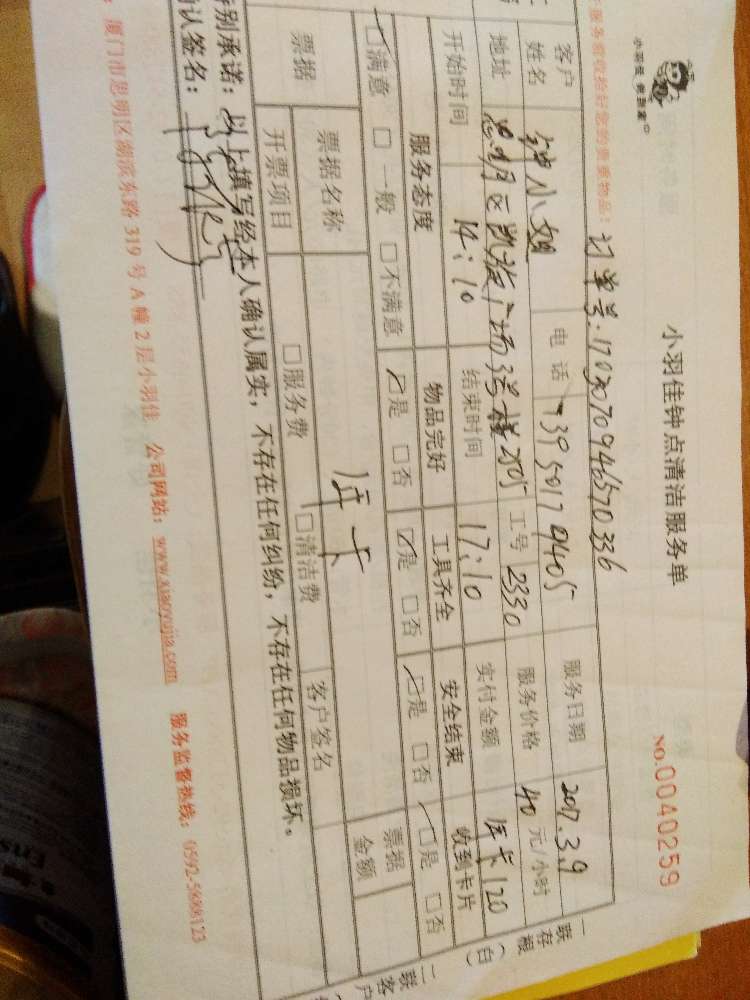 小羽佳 做到家
小羽佳钟点清洁服务单
NO.0040259
服务前收拾好您的贵重物品:
订单号:1703070946570336
客户姓名 钟小姐 电话 服务日期 2017.3.9
地址 思明区凯旋广场 工号 2330 服务价格 40 元/小时
开始时间 14:10 结束时间 17:10 实付金额 年卡120
服务态度 物品完好 工具齐全 安全结束 收到卡片
□满意 □一般 □不满意 □是 □否 □是 □否 □是 □否 □是 □否
票据 票据名称 年卡 票据金额
开票项目 □服务费 □清洁费 客户签名
特别承诺:以上填写经本人确认属实,不存在任何纠纷,不存在任何物品损坏。
确认签名:
厦门市思明区湖滨东路 319 号 A 幢 2 层小羽佳 公司网站:www.xiaoyujia.com 服务监督热线:0592-5688123
一联存根(白)
二联客户